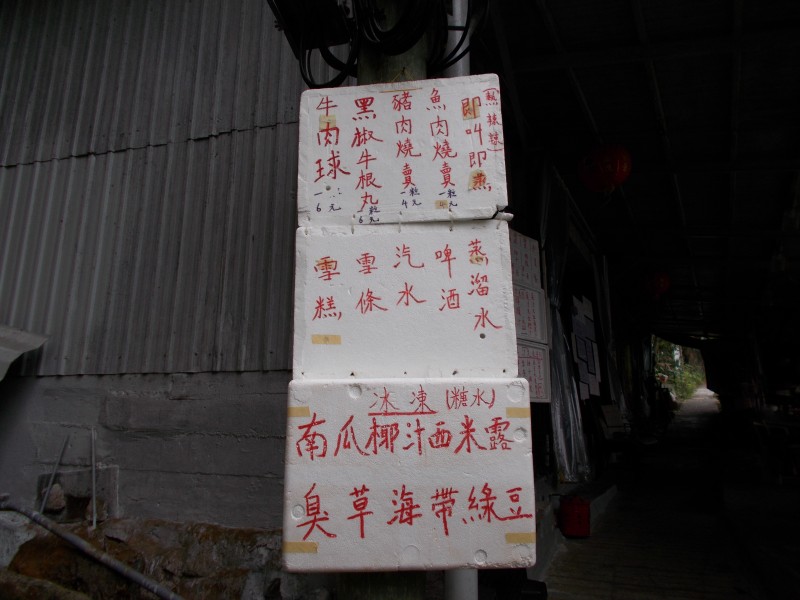 (熱辣辣)
即叫即蒸
魚肉燒賣
一粒4元
豬肉燒賣
一粒4元
黑椒牛根丸
一粒6元
牛肉球
6元
蒸溜水
啤酒
汽水
雪條
雪糕
冰凍(糖水)
南瓜椰汁西米露
臭草海帶綠豆